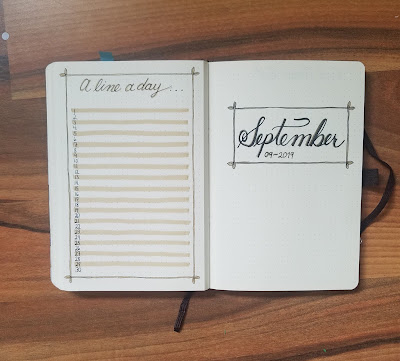 A line a day...
1
2
3
4
5
6
7
8
9
10
11
12
13
14
15
16
17
18
19
20
21
22
23
24
25
26
27
28
29
30
September
09-2019